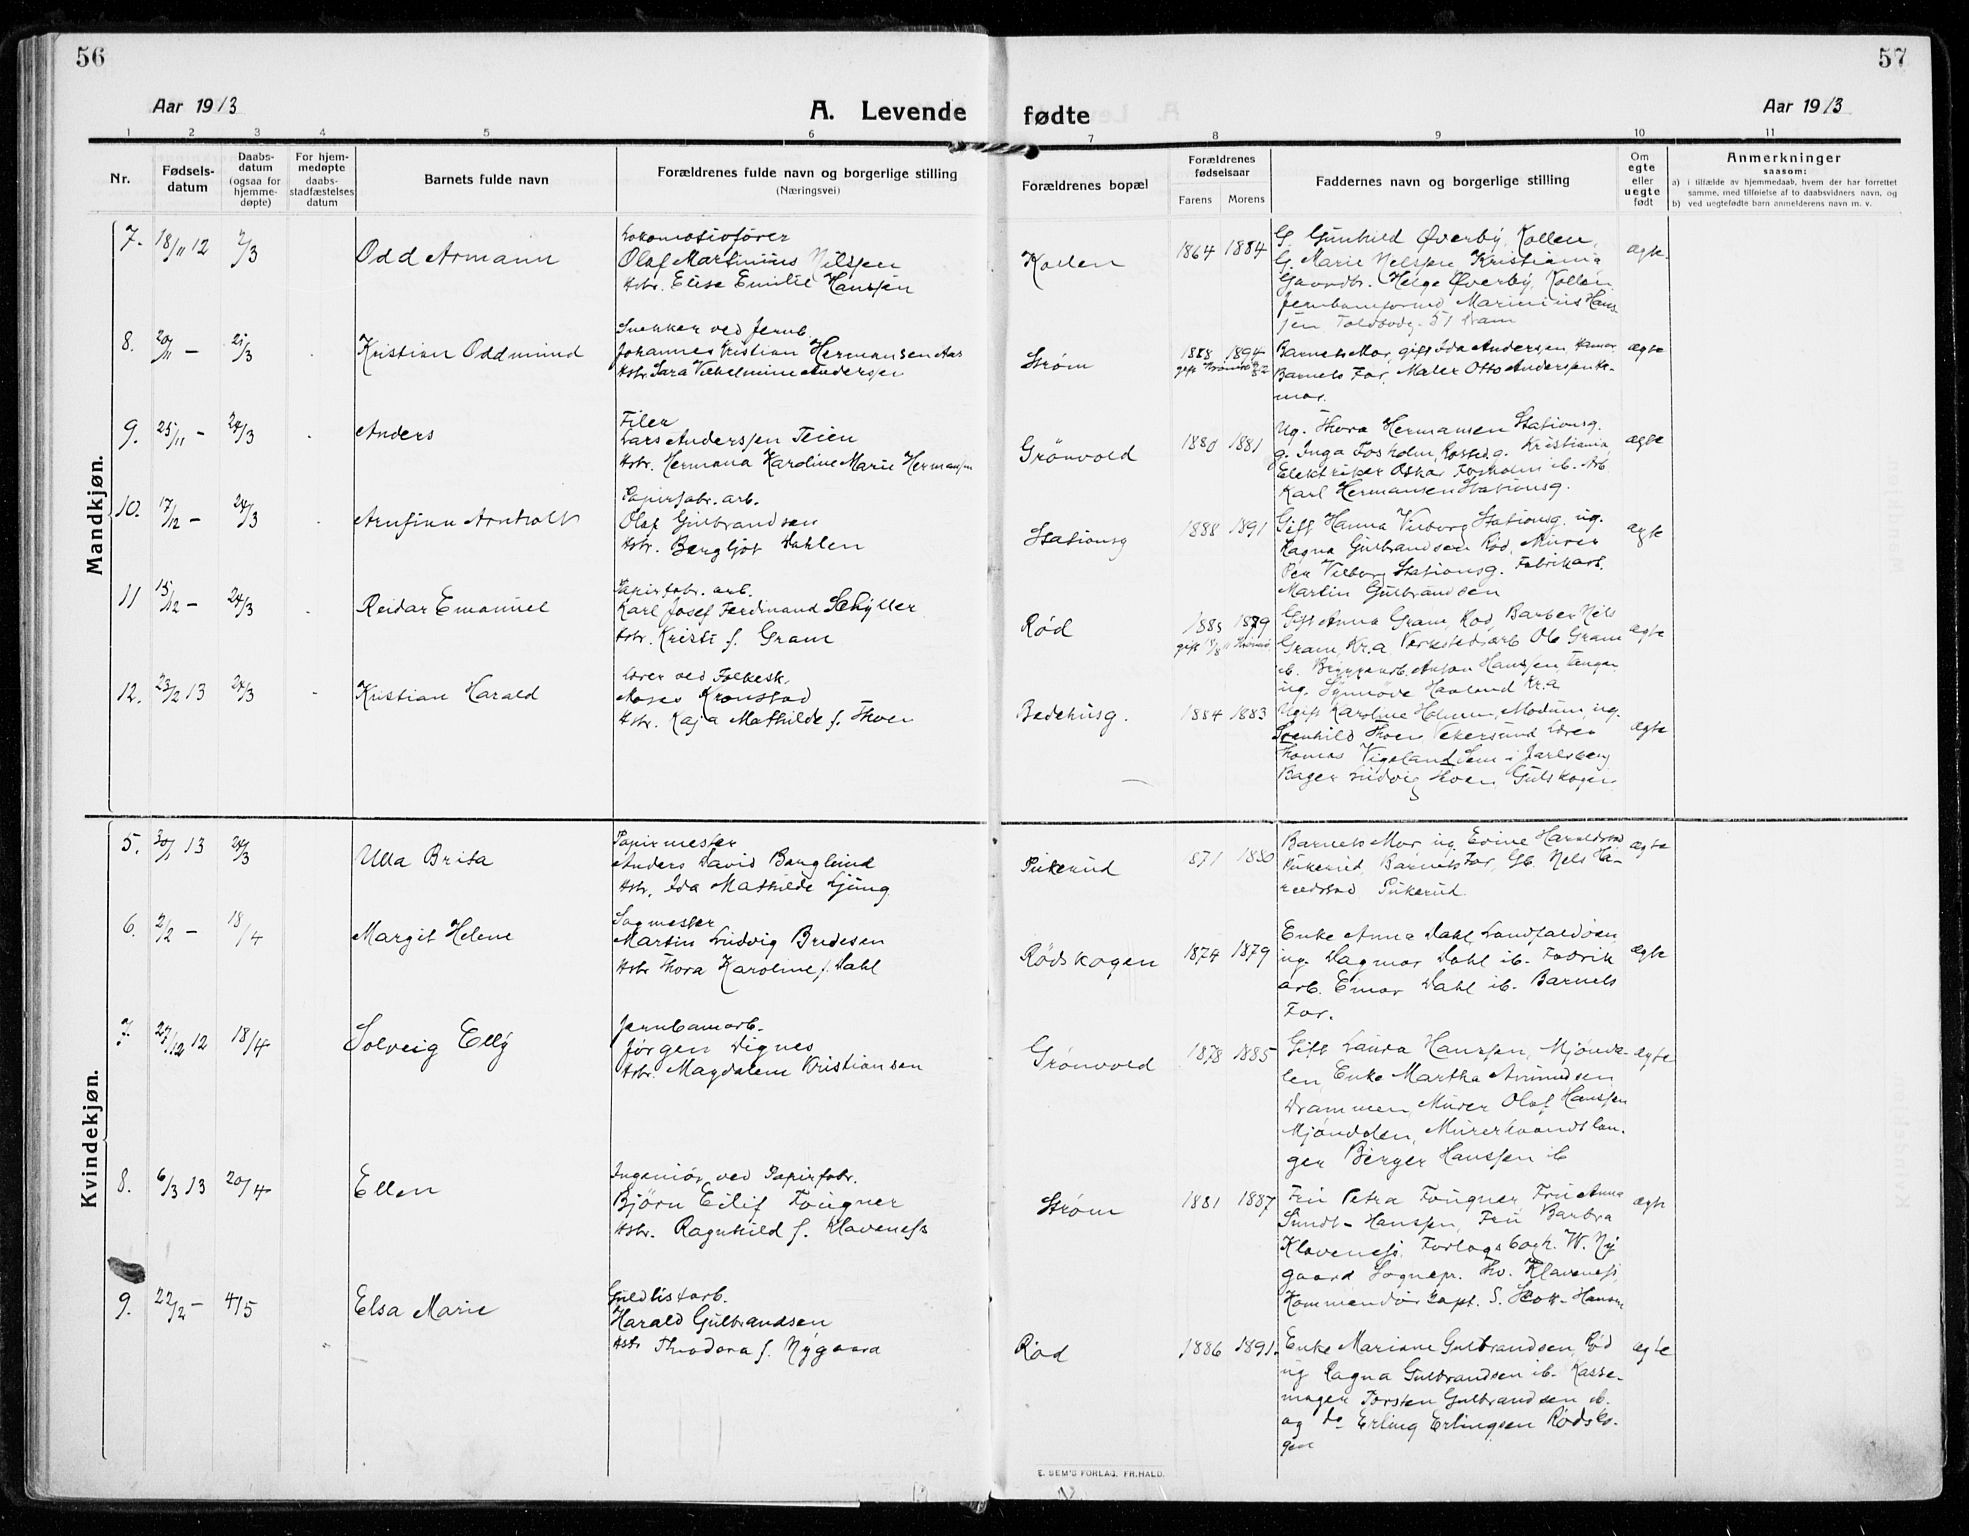 56
57
Aar 1913
A. Levende fødte
Aar 1913
1 2 3 4 5 6 7 8 9 10 11
Nr.
Fødsels-
datum
Daabs-
datum
(ogsaa for
hjemme-
døpte)
For hjem-
medøpte
daabs-
stadfæstelses
datum
Barnets fulde navn
Forældrenes fulde navn og borgerlige stilling
(Næringsvei)
Forældrenes bopæl
Forældrenes
fødselsaar
Farens Morens
Faddernes navn og borgerlige stilling
Om
egte
eller
uegte
født
Anmerkninger
saasom:
a) i tilfælde av hjemmedaab, hvem der har forrettet
samme, med tilføielse af to daabsvidners navn, og
b) ved uegtefødte barn anmelderens navn m. v.
Mandkjøn.
7. 18/11 12 2/3
Odd Armann
Lokomotivfører
Olaf Martinius Nilssen
Hstr. Elise Emilie Hanssen
Kollen
1864 1884
G. Gunhild Øverby, Kollen,
G. Marie Nilssen Kristiania
Gaardbr. Helge Øverby, Kollen
Jernbaneformd. Marinius Hans-
sen Toldbodg. 51 Dram
ægte
8. 20/11 - 21/3
Kristian Oddmund
Snekker ved Jernb.
Johannes Kristian Hermansen Aas
Hstr. Sara Vilhelmine Andersen
Strøm
1888 1894
Barnets Mor, gift Ida Andersen Hamar
Barnets Far, Maler Otto Andersen Ha-
mar.
ægte
9. 25/11 - 24/3
Anders
Filer
Lars Anderssen Teien
Hstr. Hermana Karoline Marie Hermansen
Grønvold
1880 1881
Ug. Thora Hermansen Stationsg.
g. Inga Fosholm, Rossedg. Kristiania
Elektriker Oskar Fosholm ib. Arb.
Karl Hermansen Stationsg.
ægte
10. 17/12 - 24/3
Arnfinn Arnholt
Papirfabr. arb.
Olaf Gulbrandsen
Hstr. Bergljot Dahlen
Stationsg
1888 1891
Gift Hanna Viborg Stationsg, ug.
Ragna Gulbrandsen Rød, Murer
Per Viborg Stationsg. Fabrikarb.
Martin Gulbrandsen
ægte
11 15/12 - 24/3
Reidar Emanuel
Papirfabr. arb.
Karl Josef Ferdinand Schyller
Hstr. Kristi f. Gram
Rød
1885 1879
Gift Anna Gram, Rød, Barber Nils
Gram, Kr.a Verkstedsarb Ole Gram
ib. Bryggearb. Anton Hanssen Tangen
ug. Synnøve Haaland Kr.a
ægte
12. 23/2 13 24/3
Kristian Harald
Lærer ved Folkesk.
Moses Kronstad
Hstr. Kaja Mathilde f. Thoen
Bedehusg.
1884 1883
Ugift Karoline Holmen, Modum, ug.
Svenhild Thoen Vikersund Lærer
Thomas Vigeland Sem i Jarlsberg
Bager Ludvig Thoen Gulskogen
ægte
Kvindekjøn.
5. 30/1 13 24/3
Ulla Brita
Papirmester
Anders David Berglund
Hstr. Ida Mathilde Ljung
Pukerud
871 1880
Barnets Mor, ug Evine Haraldstad
Pukerud, Barnets Far, Gb. Nels Ha-
raldstad Pukerud
ægte
6. 2/2 - 18/4
Margit Helene
Sagmester
Martin Ludvig Bredesen
Hstr Thora Karoline f. Dahl
Rødskogen
1874 1879
Enke Anna Dahl, Landfaldøen
ug. Dagmar Dahl ib. Fabrik
arb. Einar Dahl ib. Barnets
Far.
ægte
7. 27/12 12 18/4
Solveig Elly
Jernbanearb.
Jørgen Dignes
Hstr. Magdalene Kristiansen
Grønvold
1878 1885
Gift Laura Hanssen, Mjønda-
len, Enke Martha Amundsen
Drammen, Murer Olaf Hanssen
Mjøndalen, Murerhaandslan-
ger Birger Hanssen ib
ægte
8. 6/3 13 20/4
Ellen
Ingeniør ved Papirfabr.
Bjørn Eilif Fougner
Hstr. Ragnhild f. Klaveness
Strøm
1881 1887
Fru Petra Fougner Fru Anna
Sundt-Hanssen, Fru Barbra
Klaveness, Forlagsbogh. W. Ny
gaard Sognepr. Th. Klaveness,
Kommandørkapt. S. Scott-Hansen
ægte
9. 22/2 - 4/5
Elsa Marie
Guldlistarb.
Harald Gulbrandsen
Hstr Theodora f. Nygaard
Rød
1886 1891.
Enke Mariane Gulbrandsen, Rød
ug Ragna Gulbrandsen ib. Kasse-
mager Torsten Gulbrandsen ib.
og do Erling Erlingsen Rødsko-
gen
ægte
E. SEM'S FORLAG. FR.HALD.